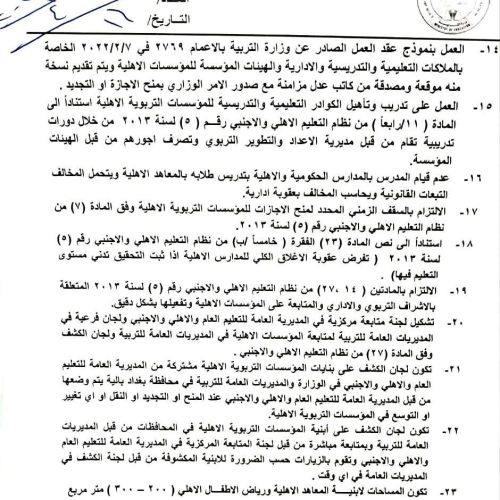 التاريخ/
١٤- العمل بنموذج عقد العمل الصادر عن وزارة التربية بالاعمام ٢٧٦٩ في ٢٠٢٢/٢/٧ الخاصة
بالملاكات التعليمية والتدريسية والادارية والهيئات المؤسسة للمؤسسات الاهلية ويتم تقديم نسخة
منه موقعة ومصدقة من كاتب عدل مزامنة مع صدور الامر الوزاري بمنح الاجازة او التجديد .
١٥- العمل على تدريب وتأهيل الكوادر التعليمية والتدريسية للمؤسسات التربوية الاهلية استناداً الى
المادة (١١/رابعاً) من نظام التعليم الاهلي والاجنبي رقم (٥) لسنة ٢٠١٣ من خلال دورات
تدريبية تقام من قبل مديرية الاعداد والتطوير التربوي وتصرف اجورهم من قبل الهيئات
المؤسسة.
١٦- عدم قيام المدرس بالمدارس الحكومية والاهلية بتدريس طلابه بالمعاهد الاهلية ويتحمل المخالف
التبعات القانونية ويحاسب المخالف بعقوبة ادارية.
١٧- الالتزام بالسقف الزمني المحدد لمنح الاجازات للمؤسسات التربوية الاهلية وفق المادة (٧) من
نظام التعليم الاهلي والاجنبي رقم (٥) لسنة ٢٠١٣.
١٨- استناداً الى نص المادة (٢٣) الفقرة (خامساً /ب) من نظام التعليم الاهلي والاجنبي رقم (٥)
لسنة ٢٠١٣ ( تفرض عقوبة الاغلاق الكلي للمدارس الاهلية اذا ثبت التحقيق تدني مستوى
التعليم فيها).
١٩- الالتزام بالمادتين (١٤ ،٢٧) من نظام التعليم الاهلي والاجنبي رقم (٥) لسنة ٢٠١٣ المتعلقة
بالاشراف التربوي والاداري والمتابعة على المؤسسات الاهلية وتفعيلها بشكل دقيق.
٢٠- تشكيل لجنة متابعة مركزية في المديرية العامة للتعليم العام والاهلي والاجنبي ولجان فرعية في
المديريات العامة للتربية لمتابعة المؤسسات الاهلية في المديريات العامة للتربية ولجان الكشف
وفق المادة (٢٧) من نظام التعليم الاهلي والاجنبي .
٢١- تكون لجان الكشف على بنايات المؤسسات التربوية الاهلية مشتركة من المديرية العامة للتعليم
العام والاهلي والاجنبي في الوزارة والمديريات العامة للتربية في محافظة بغداد بالية يتم وضعها
من قبل المديرية العامة للتعليم العام والاهلي والاجنبي عند المنح او التجديد او النقل او اي تغيير
او التوسع في المؤسسات التربوية الاهلية.
٢٢- تكون لجان الكشف على أبنية المؤسسات التربوية الاهلية في المحافظات من قبل المديريات
العامة للتربية وبمتابعة مباشرة من قبل لجنة المتابعة المركزية في المديرية العامة للتعليم العام
والاهلي والاجنبي وتقوم بالزيارات حسب الضرورة للابنية المكشوفة من قبل لجنة الكشف في
المديريات العامة في اي وقت .
٢٣- تكون المساحات لابنية المعاهد الاهلية ورياض الاطفال الاهلي (٢٠٠ – ٣٠٠) متر مربع